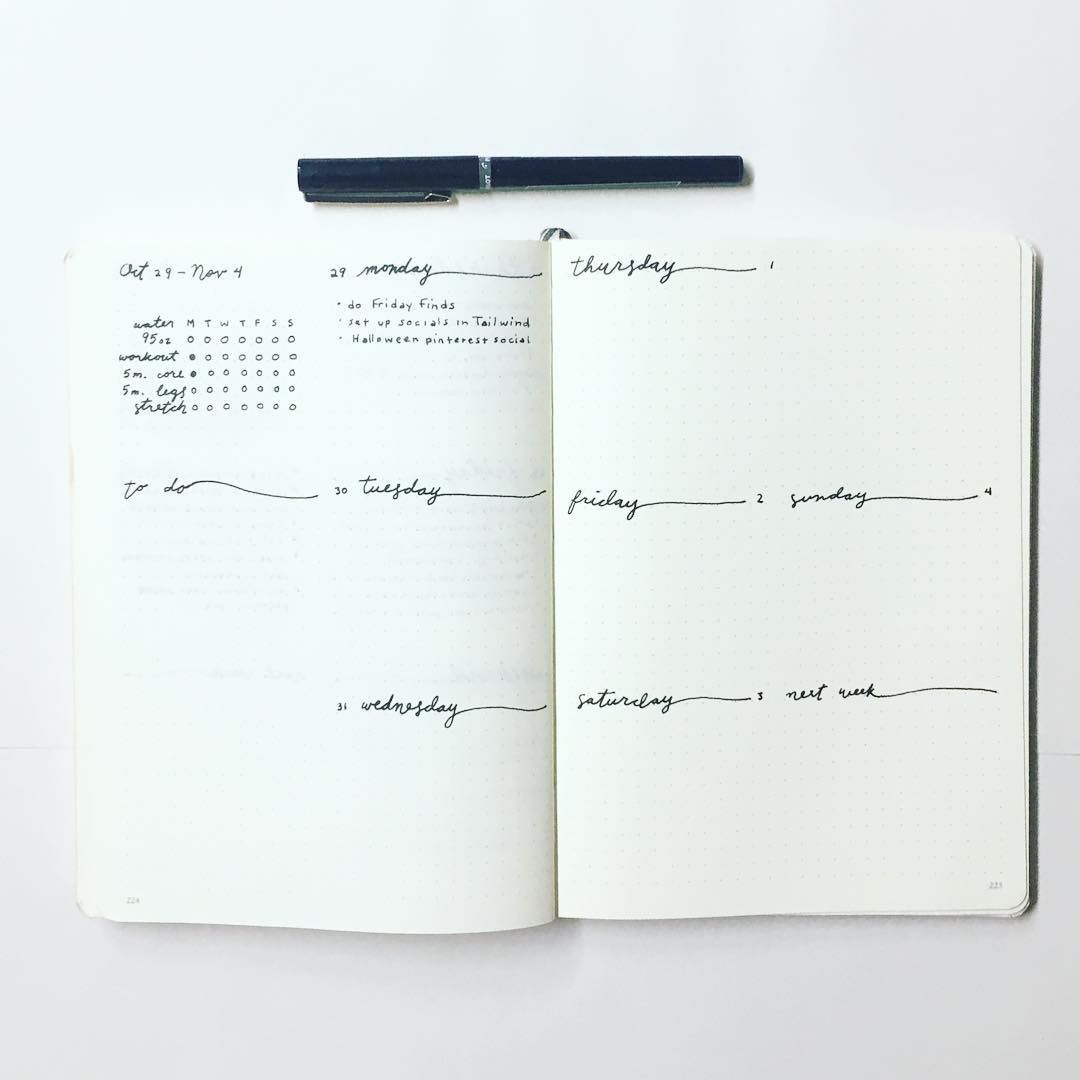 Oct 29 - Nov 4
water M T W T F S S
95oz
workout
5m. core
5m. legs
stretch
to do
29 monday
· do Friday Finds
· set up socials in Tailwind
· Halloween pinterest social
30 tuesday
31 wednesday
224
thursday 1
friday 2
saturday 3
sunday 4
next week
225